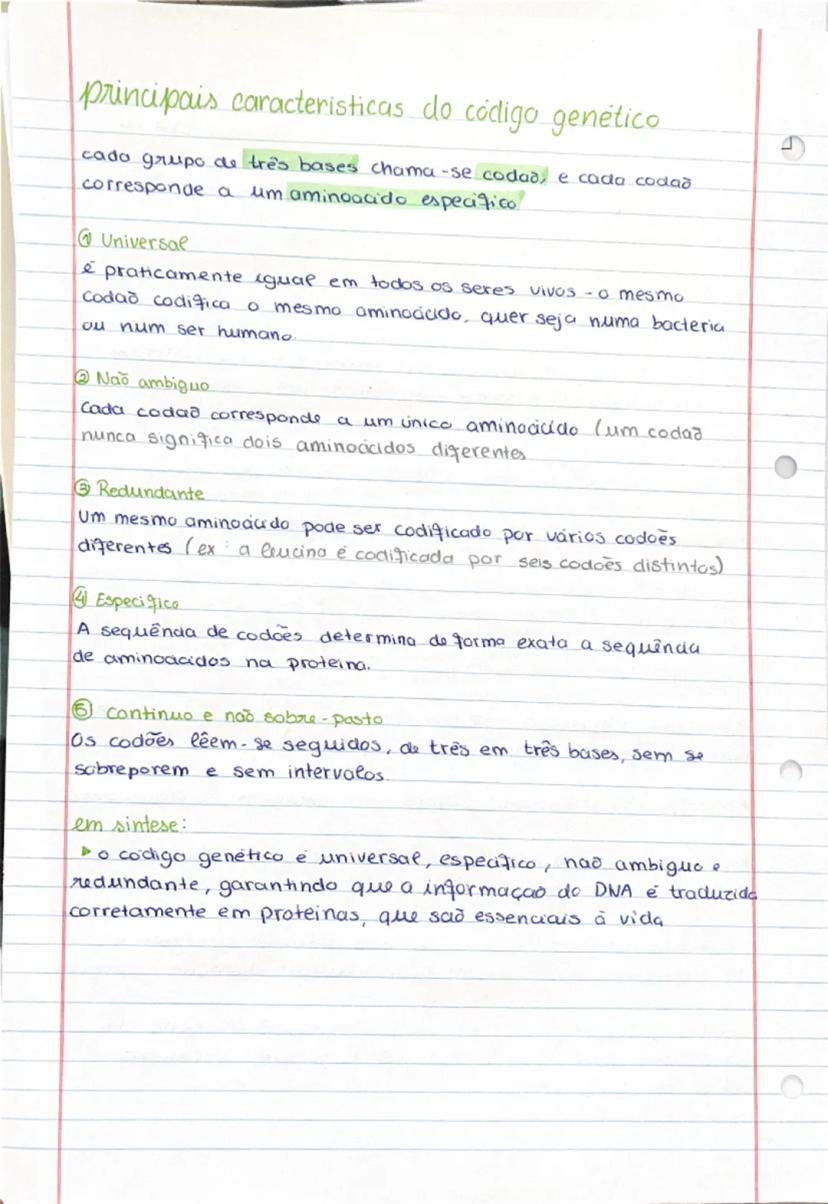 principais caracteristicas do código genético
cada grupo de três bases chama-se codaõ, e cada codaõ
corresponde a um aminoacido especifico
① Universal
é praticamente igual em todos os seres vivos - o mesmo
codaõ codifica o mesmo aminoácido, quer seja numa bacteria
ou num ser humano.
② Naõ ambiguo
Cada codaõ corresponde a um único aminoácido (um codaõ
nunca significa dois aminoácidos diferentes
③ Redundante
Um mesmo aminoácido pode ser codificado por vários codoẽs
diferentes (ex: a leucina é codificada por seis codoẽs distintos)
④ Especifico
A sequência de codões determina de forma exata a sequência
de aminoacidos na proteina.
⑤ continuo e naõ sobre-posto
Os codões lêem-se seguidos, de três em três bases, sem se
sobreporem e sem intervalos.
em sintese:
▸ o código genético é universal, especifico, naõ ambiguo e
redundante, garantindo que a informaçaõ do DNA é traduzida
corretamente em proteinas, que saõ essenciais à vida